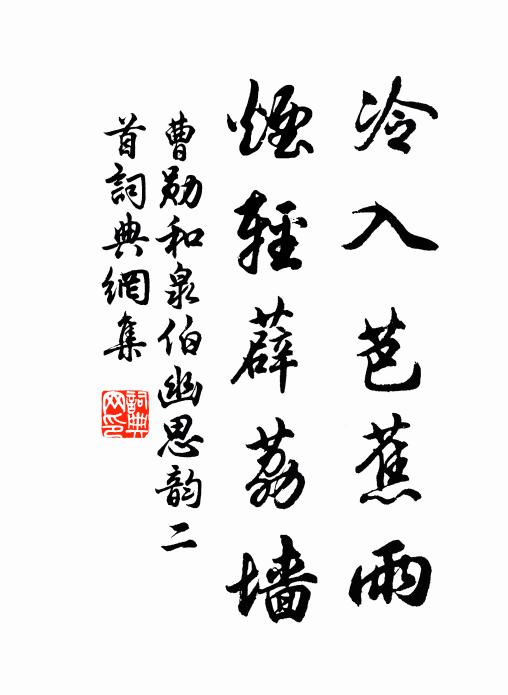 冷入芭蕉雨
煙輕薜荔墻
曹勛和泉伯幽思韵二
首詞典網集
詞典
网印